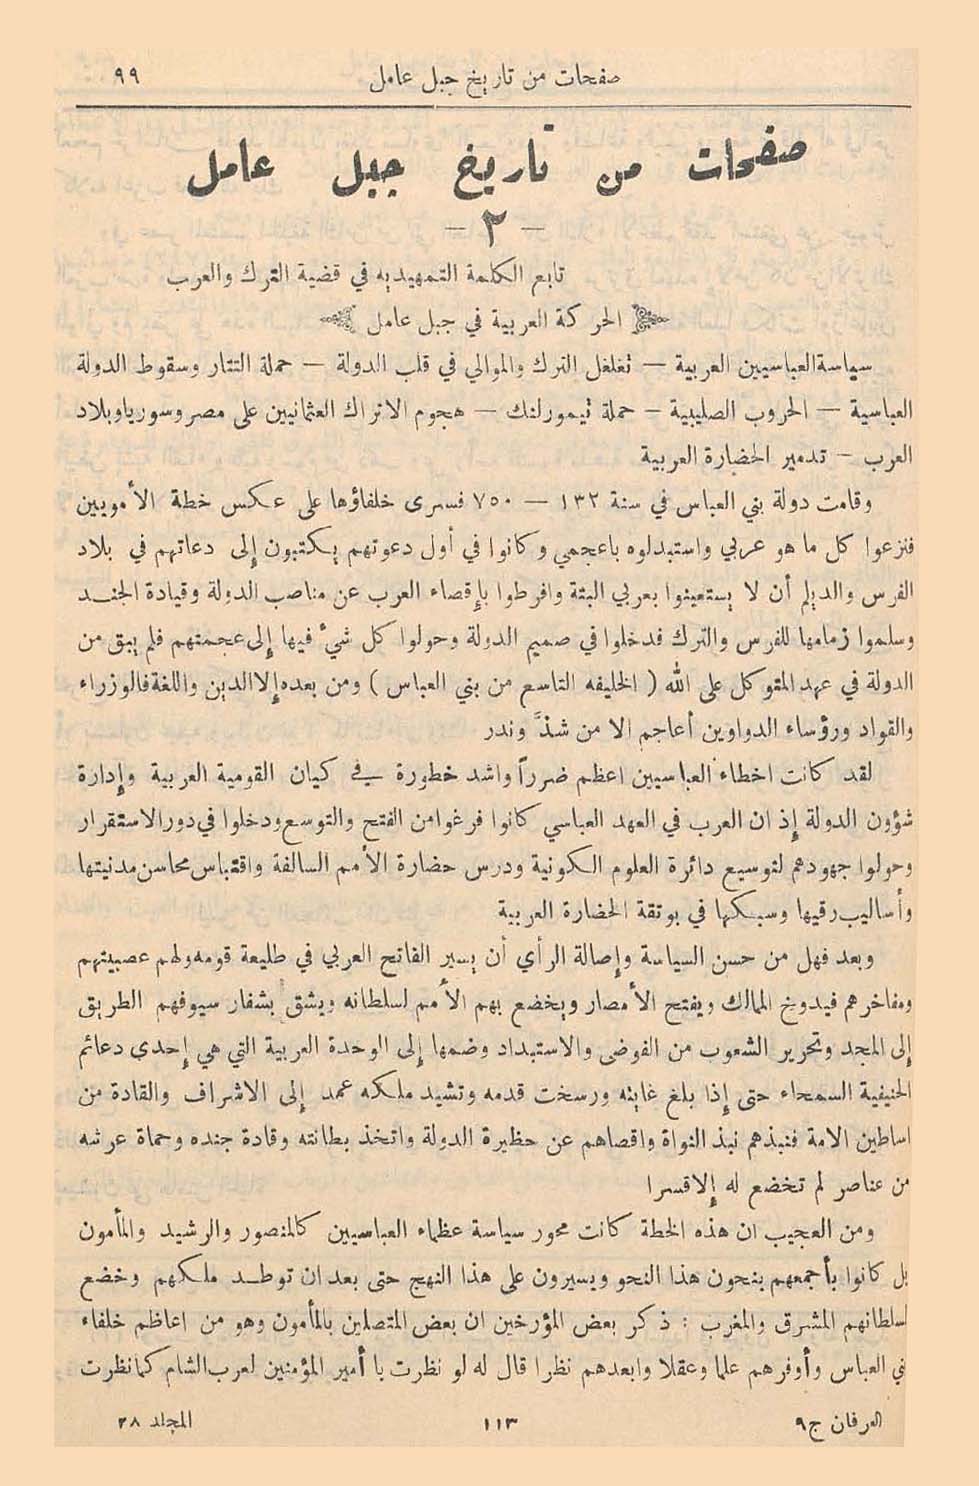 صفحات من تاريخ جبل عامل ٩٩
صفحات من تاريخ جبل عامل
- ٢ -
تابع الكلمة التمهيديه في قضية الترك والعرب
الحركة العربية في جبل عامل
سياسة العباسيين العربية – تغلغل الترك والموالي في قلب الدولة – حملة التتار وسقوط الدولة
العباسية – الحروب الصليبية – حملة تيمورلنك – هجوم الاتراك العثمانيين على مصر وسوريا وبلاد
العرب – تدمير الحضارة العربية
وقامت دولة بني العباس في سنة ١٣٢ – ٧٥٠ فسرى خلفاؤها على عكس خطة الأمويين
فنزعوا كل ما هو عربي واستبدلوه باعجمي وكانوا في أول دعوتهم يكتبون إلى دعاتهم في بلاد
الفرس والديلم أن لا يستعينوا بعربي البتة وافرطوا بإقصاء العرب عن مناصب الدولة وقيادة الجند
وسلموا زمامها للفرس والترك فدخلوا في صميم الدولة وحولوا كل شيء فيها إلى عجمتهم فلم يبق من
الدولة في عهد المتوكل على الله ( الخليفه التاسع من بني العباس ) ومن بعده إلا الدين واللغة فالوزراء
والقواد ورؤساء الدواوين أعاجم الا من شذَّ وندر
لقد كانت اخطاء العباسيين اعظم ضرراً واشد خطورة في كيان القومية العربية وإدارة
شؤون الدولة إذ ان العرب في العهد العباسي كانوا فرغوا من الفتح والتوسع ودخلوا في دور الاستقرار
وحولوا جهودهم لتوسيع دائرة العلوم الكونية ودرس حضارة الأمم السالفة واقتباس محاسن مدنيتها
وأساليب رقيها وسبكها في بوتقة الحضارة العربية
وبعد فهل من حسن السياسة وإصالة الرأي أن يسير الفاتح العربي في طليعة قومه ولهم عصبيتهم
ومفاخرهم فيدوخ الممالك ويفتح الأمصار ويخضع بهم الأمم لسلطانه ويشق بشفار سيوفهم الطريق
إلى المجد وتحرير الشعوب من الفوضى والاستبداد وضمها إلى الوحدة العربية التي هي إحدى دعائم
الحنيفية السمحاء حتى إذا بلغ غايته ورسخت قدمه وتشيد ملكه عمد إلى الاشراف والقادة من
اساطين الامة فنبذهم نبذ النواة واقصاهم عن حظيرة الدولة واتخذ بطانته وقادة جنده وحماة عرشه
من عناصر لم تخضع له إلا قسرا
ومن العجيب ان هذه الخطة كانت محور سياسة عظماء العباسيين كالمنصور والرشيد والمأمون
بل كانوا بأجمعهم ينحون هذا النحو ويسيرون على هذا النهج حتى بعد ان توطد ملكهم وخضع
لسلطانهم المشرق والمغرب : ذكر بعض المؤرخين ان بعض المتصلين بالمأمون وهو من اعاظم خلفاء
بني العباس وأوفرهم علما وعقلا وابعدهم نظرا قال له لو نظرت يا أمير المؤمنين لعرب الشام كما نظرت
العرفان ج٩ ١١٣ المجلد ٢٨